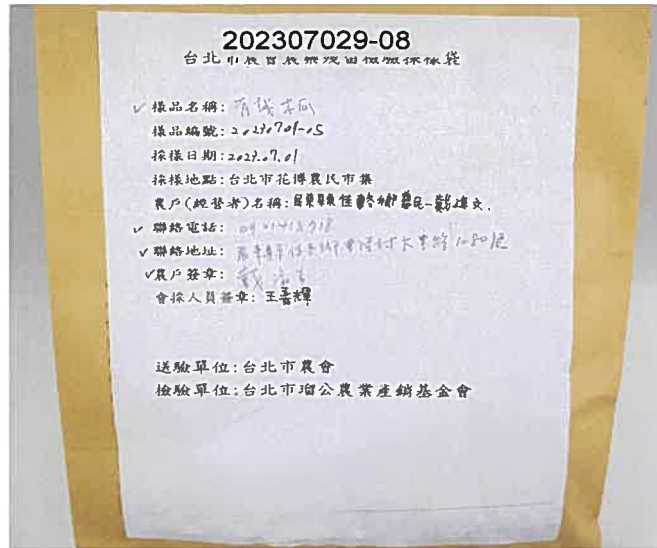 202307029-08
台北市農會農藥殘留檢驗採樣袋
✓ 樣品名稱: 有機木瓜
樣品編號: 20230701-05
採樣日期: 2023.07.01
採樣地點: 台北市花博農民市集
農戶(經營者)名稱: 屏東縣佳冬鄉農民-戴
✓ 聯絡電話:
✓ 聯絡地址: 屏東縣佳冬鄉
✓ 農戶簽章: 戴
會採人員簽章: 王善輝
送驗單位: 台北市農會
檢驗單位: 台北市瑠公農業產銷基金會